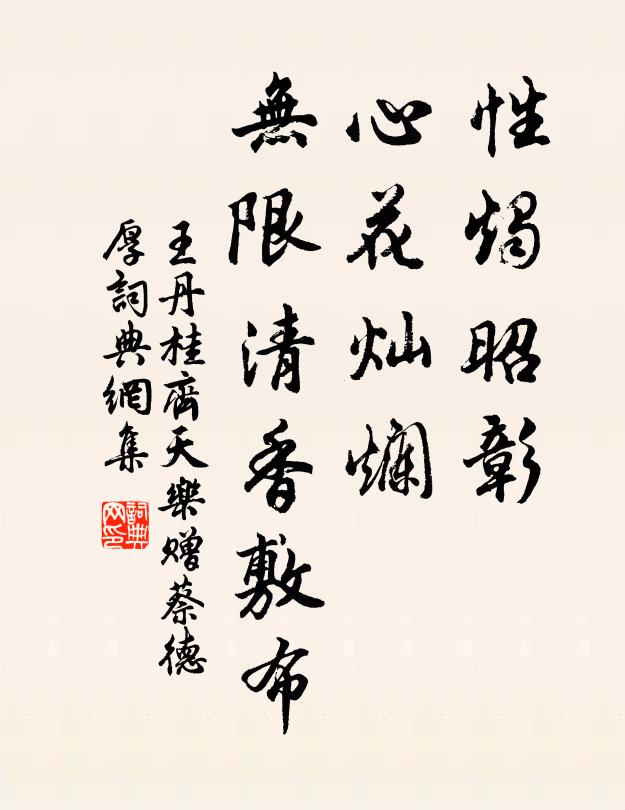 性烛昭彰
心花灿爛
無限清香敷布
王丹桂齊天樂赠蔡德
厚詞典網集
詞典网印